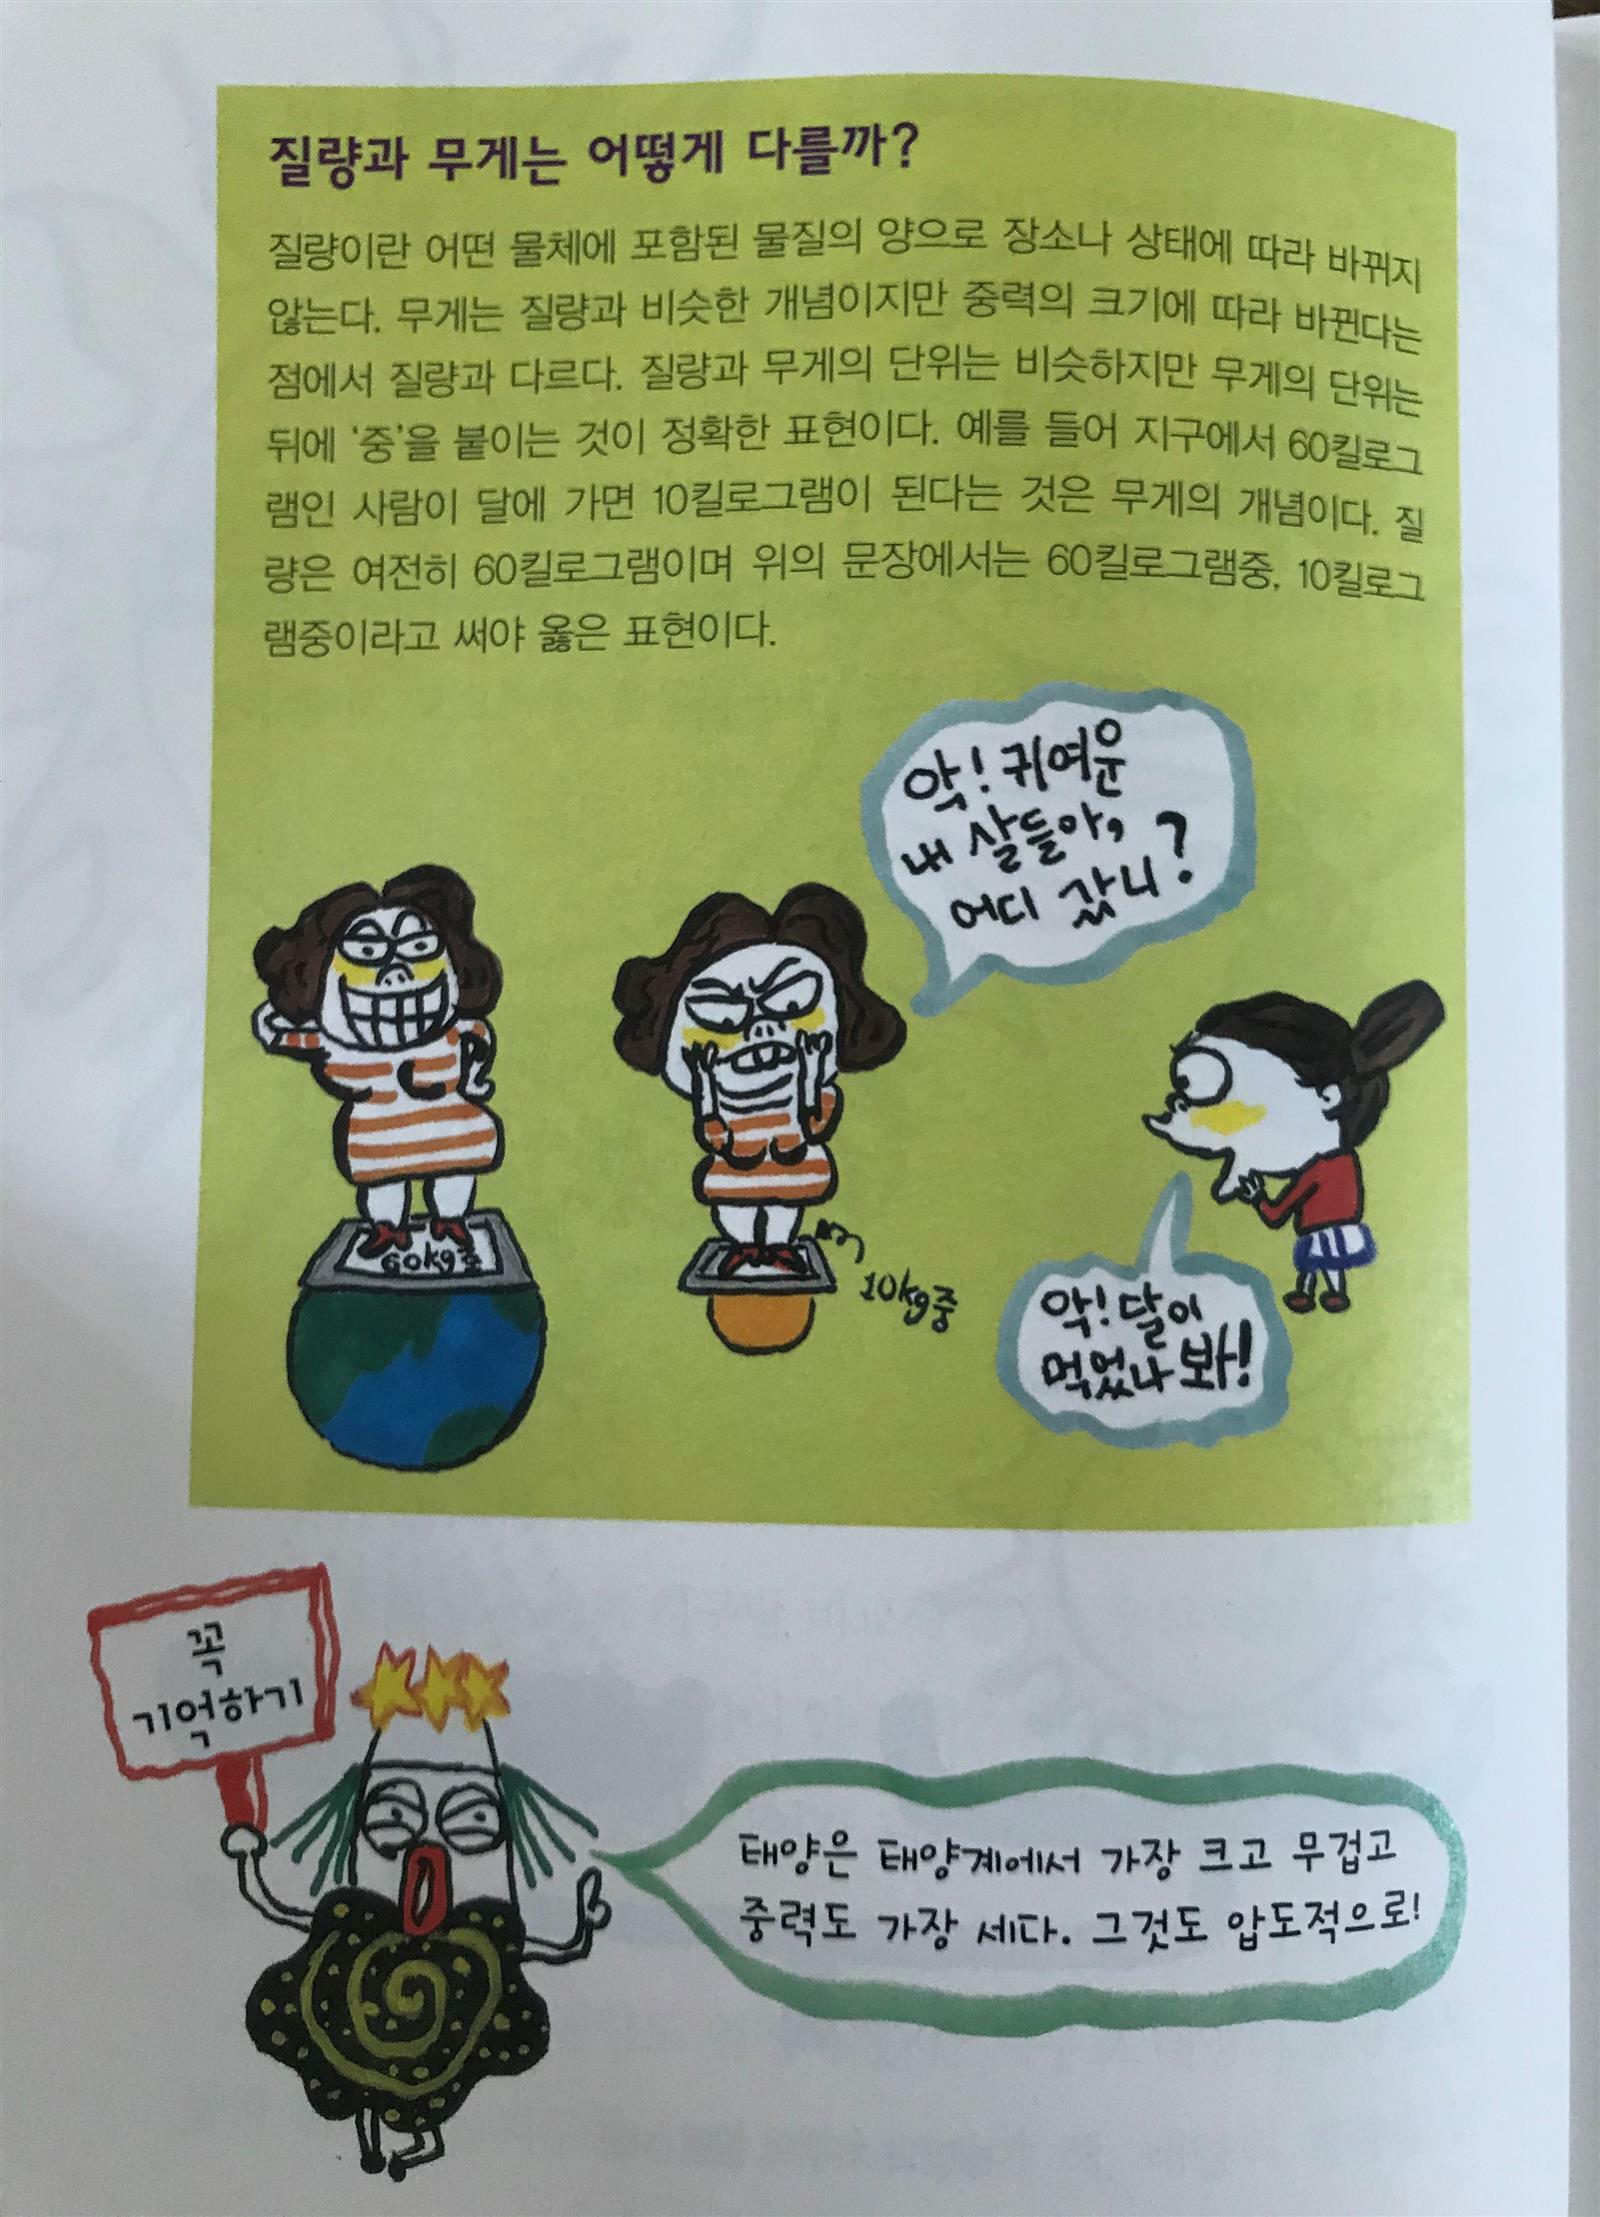 질량과 무게는 어떻게 다를까?
질량이란 어떤 물체에 포함된 물질의 양으로 장소나 상태에 따라 바뀌지
않는다. 무게는 질량과 비슷한 개념이지만 중력의 크기에 따라 바뀐다는
점에서 질량과 다르다. 질량과 무게의 단위는 비슷하지만 무게의 단위는
뒤에 ‘중’을 붙이는 것이 정확한 표현이다. 예를 들어 지구에서 60킬로그
램인 사람이 달에 가면 10킬로그램이 된다는 것은 무게의 개념이다. 질
량은 여전히 60킬로그램이며 위의 문장에서는 60킬로그램중, 10킬로그
램중이라고 써야 옳은 표현이다.
악! 귀여운
내 살들아,
어디 갔니?
60kg중
10kg중
악! 달이
먹었나 봐!
꼭
기억하기
태양은 태양계에서 가장 크고 무겁고
중력도 가장 세다. 그것도 압도적으로!